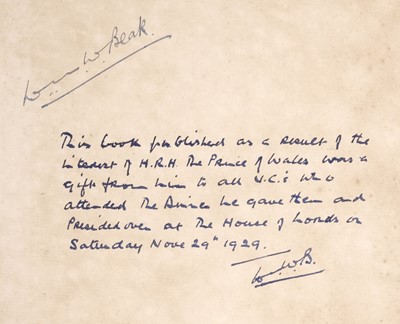 W. W. Beak.
This book published as a result of the
interest of H.R.H. The Prince of Wales was a
gift from him to all V.C.'s who
attended the Dinner he gave them and
Presided over at The House of Lords on
Saturday Nove 29th 1929.
W.W.B.